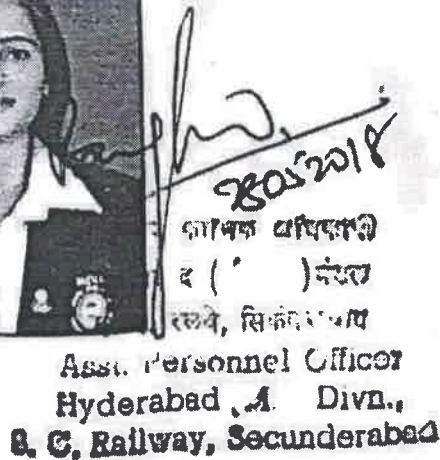 28052018
द ( )मंडल
रेलवे,
Asst. Personnel Officer
Hyderabad Divn.,
S. C. Railway, Secunderabad